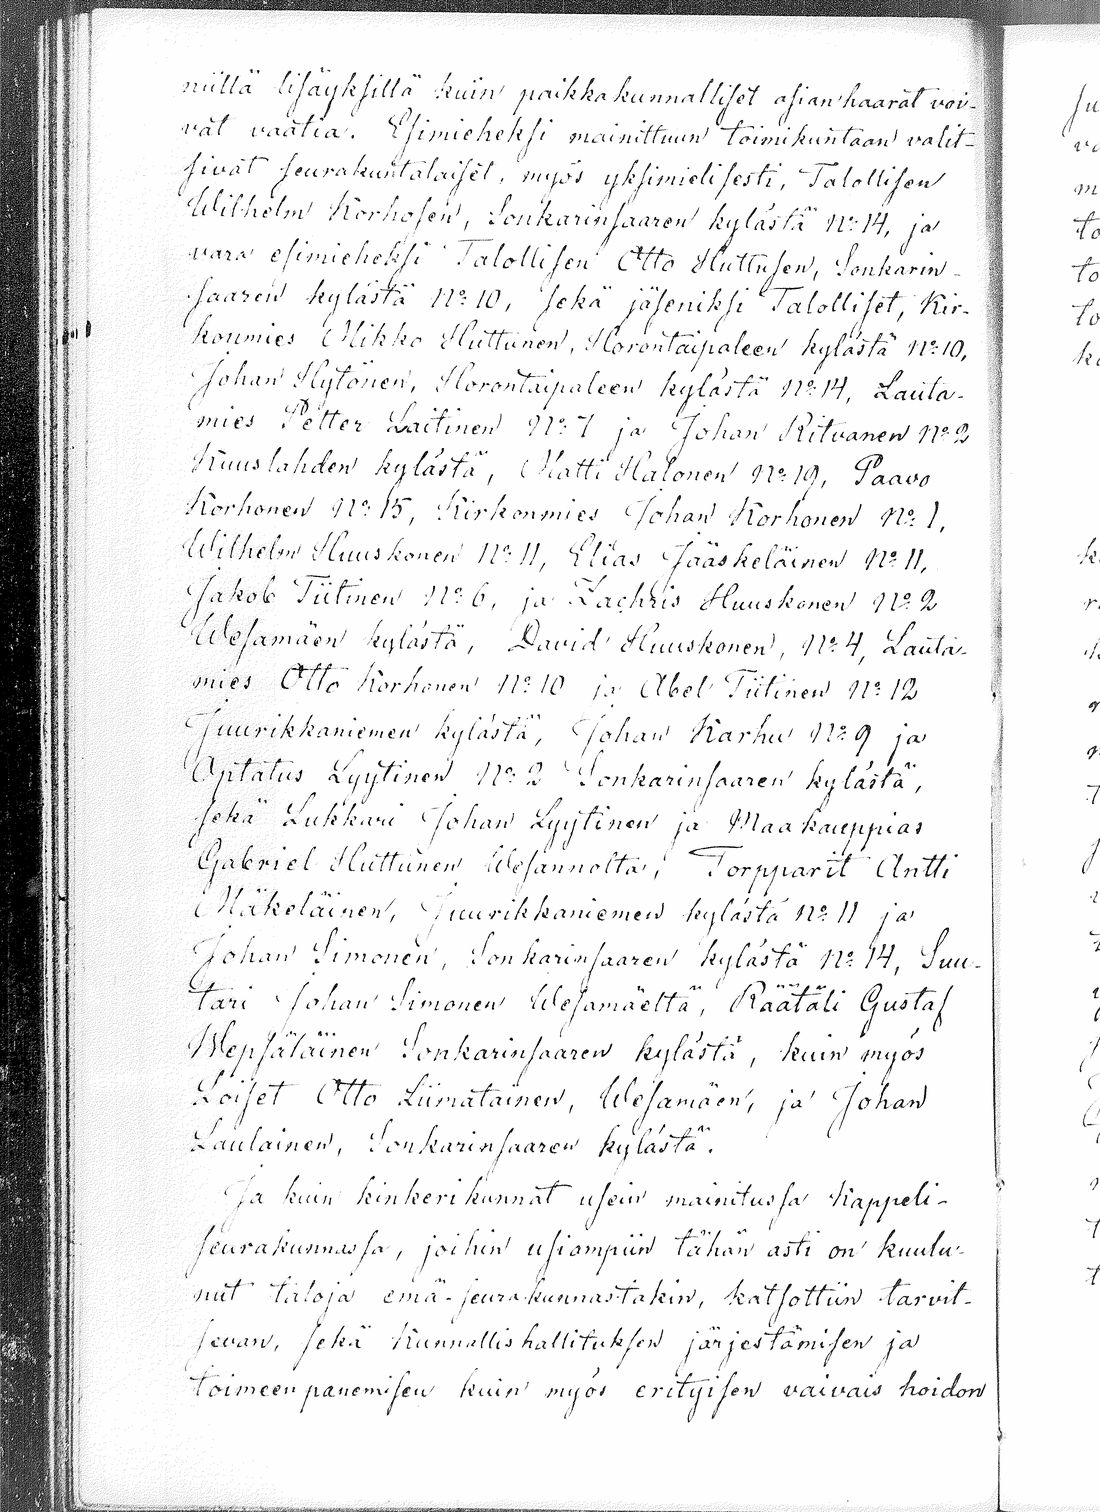 niillä lisäyksillä kuin paikkakunnalliset asianhaarat voi-
vat vaatia. Esimieheksi mainittuun toimikuntaan valit-
sivat seurakuntalaiset, myös yksimielisesti, Talollisen
Wilhelm Korhosen, Sonkarinsaaren kylästä No 14, ja
vara esimieheksi Talollisen Otto Huttusen, Sonkarin-
saaren kylästä No 10, sekä jäseniksi Talolliset, Kir-
konmies Mikko Huttunen, Horontaipaleen kylästä No 10,
Johan Hytönen, Horontaipaleen kylästä No 14, Lauta-
mies Petter Laitinen No 7 ja Johan Ritvanen No 2
Kuuslahden kylästä, Matti Halonen No 19, Paavo
Korhonen No 15, Kirkonmies Johan Korhonen No 1,
Wilhelm Huuskonen No 11, Elias Jääskeläinen No 11,
Jakob Tiitinen No 6, ja Zachris Huuskonen No 2
Wesamäen kylästä, David Huuskonen, No 4, Lauta-
mies Otto Korhonen No 10 ja Abel Tiitinen No 12
Juurikkaniemen kylästä, Johan Karhu No 9 ja
Optatus Lyytinen No 2 Sonkarinsaaren kylästä,
sekä Lukkari Johan Lyytinen ja Maakauppias
Gabriel Huttunen Wesannolta, Torpparit Antti
Mäkeläinen, Juurikkaniemen kylästä No 11 ja
Johan Simonen, Sonkarinsaaren kylästä No 14, Suu-
tari Johan Simonen Wesamäeltä, Räätäli Gustaf
Wepsäläinen Sonkarinsaaren kylästä, kuin myös
Loiset Otto Liimatainen, Wesamäen, ja Johan
Laulainen, Sonkarinsaaren kylästä.
Ja kuin kinkerikunnat usein mainitussa Kappeli-
seurakunnassa, joihin usiampiin tähän asti on kuulu-
nut taloja emä-seurakunnastakin, katsottiin tarvit-
sevan, sekä Kunnallishallituksen järjestämisen ja
toimeenpanemisen kuin myös erityisen vaivais hoidon